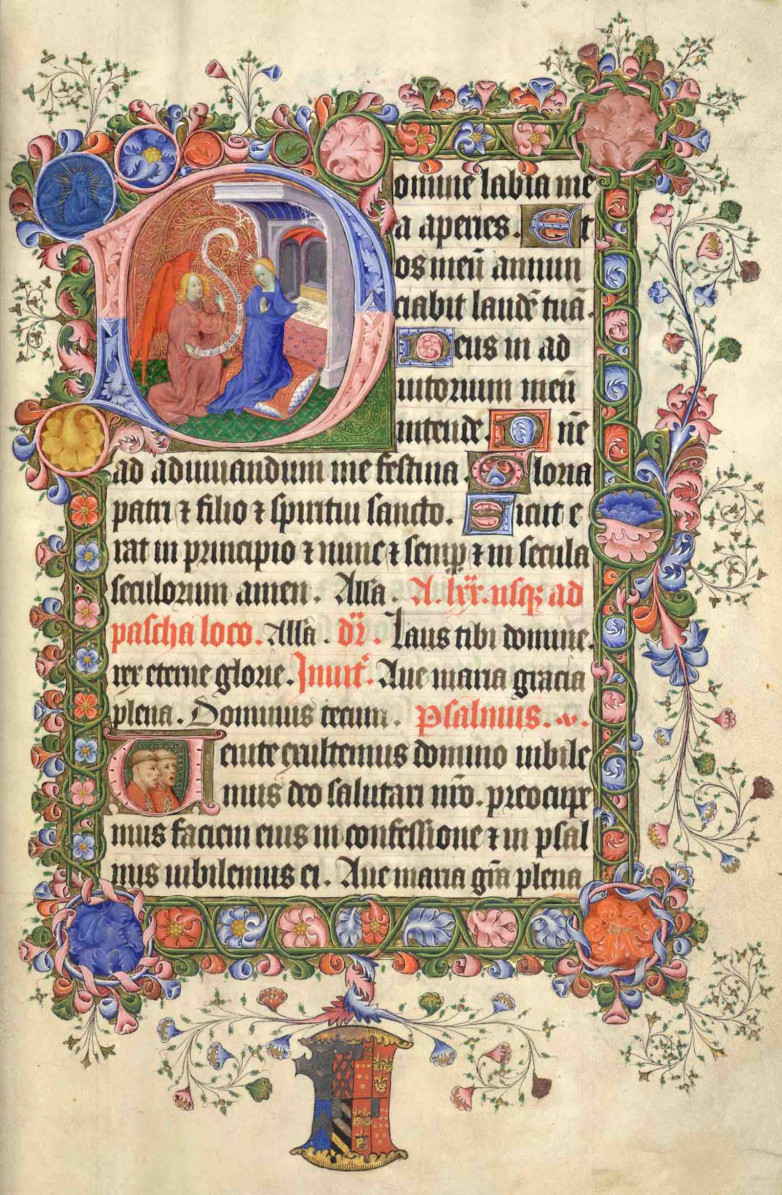 Domine labia me
a aperies. Et
os meū annun
ciabit laudē tuā.
Deus in ad
iutorium meū
intende. Dn̄e
ad adiuuandum me festina Gloria
patri ⁊ filio ⁊ spiritui sancto. Sicut e
rat in principio ⁊ nunc ⁊ semꝑ ⁊ in secula
seculorum amen. Alla. A .lxx. usqꝫ ad
pascha loco. Alla. dr̄. Laus tibi domine.
rex eterne glorie. Inuit. Aue maria gracia
plena. Dominus tecum. Psalmus.
Uenite exultemus domino iubile
mus deo salutari nr̄o. preocupe
mus faciem eius in confessione ⁊ in psal
mis iubilemus ei. Aue maria gr̄a plena